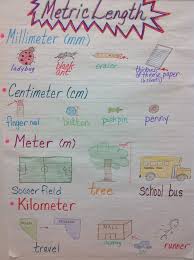 Metric Length
Millimeter (mm)
ladybug
black ant
eraser
thickness of
paper
Centimeter (cm)
finger nail
button
push pin
penny
Meter (m)
Soccer field
tree
school bus
Kilometer
MALL
travel
runner